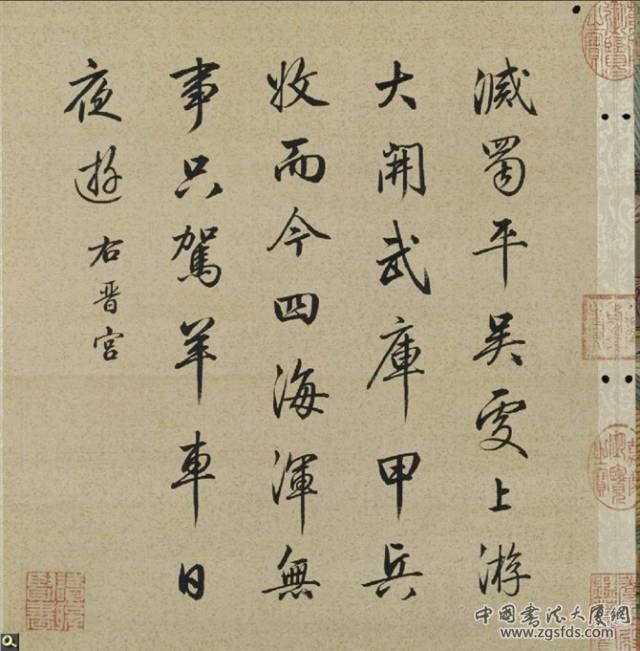 滅蜀平吳霸上游
大開武庫甲兵
收而今四海渾無
事只駕羊車日
夜遊 右晉宮
中国书法大厦網
www.zgsfds.com